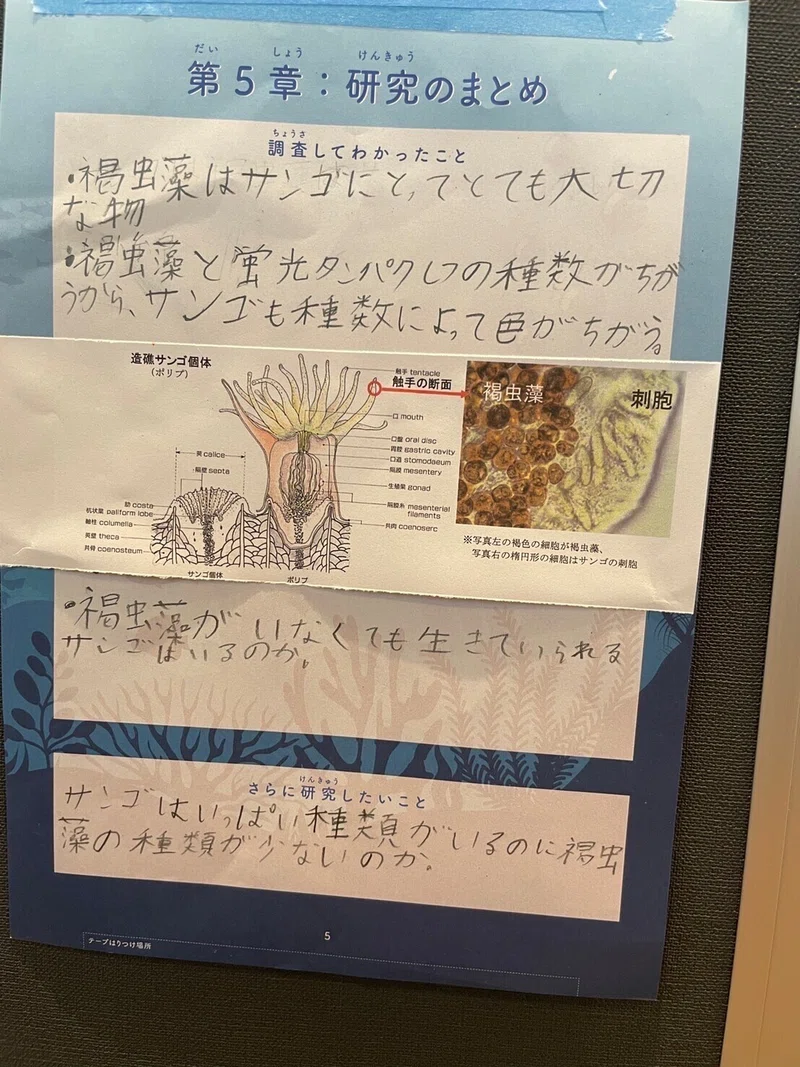 だい しょう けんきゅう
第5章：研究のまとめ
ちょうさ
調査してわかったこと
・褐虫藻はサンゴにとってとても大切
な物
・褐虫藻と蛍光タンパクしつの種数がちが
うから、サンゴも種数によって色がちがう。
造礁サンゴ個体
(ポリプ)
触手 tentacle
触手の断面
口 mouth
口盤 oral disc
胃腔 gastric cavity
口道 stomodaeum
隔膜 mesentery
生殖巣 gonad
隔膜糸 mesenterial
filaments
共肉 coenosarc
莢 calice
隔壁 septa
肋 costa
杭状葉 paliform lobe
軸柱 columella
莢壁 theca
共骨 coenosteum
サンゴ個体
ポリプ
褐虫藻
刺胞
※写真左の褐色の細胞が褐虫藻、
写真右の楕円形の細胞はサンゴの刺胞
・褐虫藻がいなくても生きていられる
サンゴはいるのか。
けんきゅう
さらに研究したいこと
サンゴはいっぱい種類がいるのに褐虫
藻の種類が少ないのか。
5
テープはりつけ場所